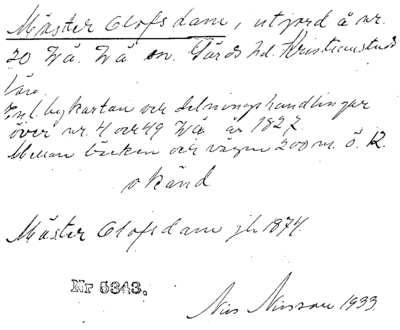 Mäster Olofsdam, utjord å nr.
20 Wä. Wä sn. Gärds hd. Kristianstads
län.
Enl. bykartan över delningshandlingar
över nr. 4 och 49 Wä år 1827.
Mellan bäcken och vägen 200 m. ö. 12.
okänd
Mäster Olofsdam jb 1874.
Nr 5343.
Nils Nilsson 1933.